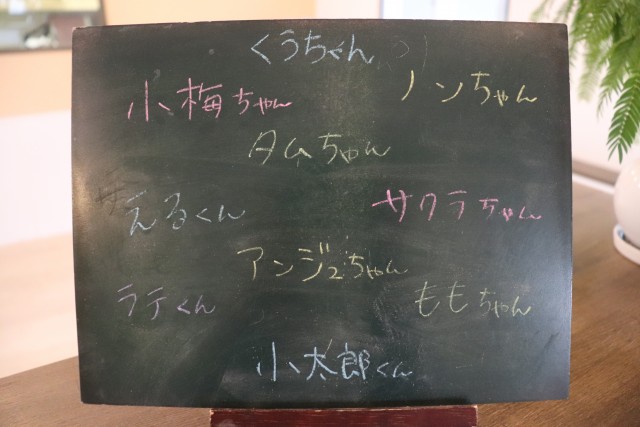 くうちゃん
小梅ちゃん
ノンちゃん
タムちゃん
えるくん
サクラちゃん
アンジュちゃん
ラテくん
ももちゃん
小太郎くん